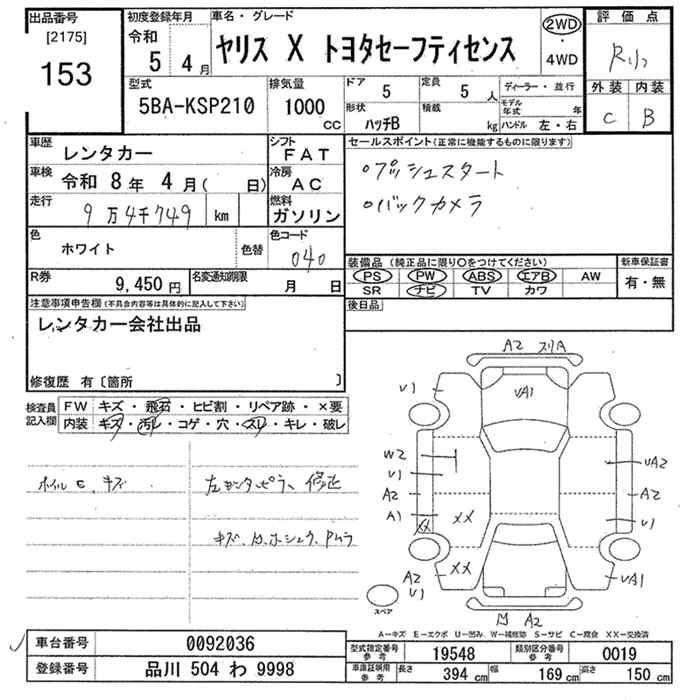 出品番号
[2175]
153
初度登録年月
令和
5 4月
車名・グレード
ヤリス X トヨタセーフティセンス
2WD
・
4WD
評価点
外装 内装
C B
型式
5BA-KSP210
排気量
1000
CC
ドア
5
定員
5 人
形状
ハッチB
積載
kg
ディーラー・並行
モデル年式 年
ハンドル 左・右
車歴
レンタカー
シフト
FAT
車検
令和 8年 4月( 日)
冷房
AC
走行
9万4千749 km
燃料
ガソリン
色
ホワイト
色替
色コード
040
R券
9,450円
名変通知期限
月 日
セールスポイント(正常に機能するものに限ります)
○プッシュスタート
○バックカメラ
装備品 (純正品に限り○をつけてください)
PS PW ABS エアB AW
SR ナビ TV カワ
新車保証書
有・無
後日品
注意事項申告欄(不具合内容等は具体的に記入して下さい)
レンタカー会社出品
修復歴 有〔箇所 〕
検査員
記入欄
FW キズ・飛石・ヒビ割・リペア跡・×要
内装 キズ・汚レ・コゲ・穴・スレ・キレ・破レ
左センターピラー 修正
A2 スリA
U1
UA1
W2
U1
A2
A1
XX
XX
UA2
A2
U1
XX
A2
U1
UA1
A2
スペア
A-キズ E-エクボ U-凹み W-補修跡 S-サビ C-腐食 XX-交換済
車台番号
0092036
登録番号
品川 504 わ 9998
型式指定番号
参考
19548
類別区分番号
参考
0019
車庫証明用
参考
長さ
394 cm
幅
169 cm
高さ
150 cm